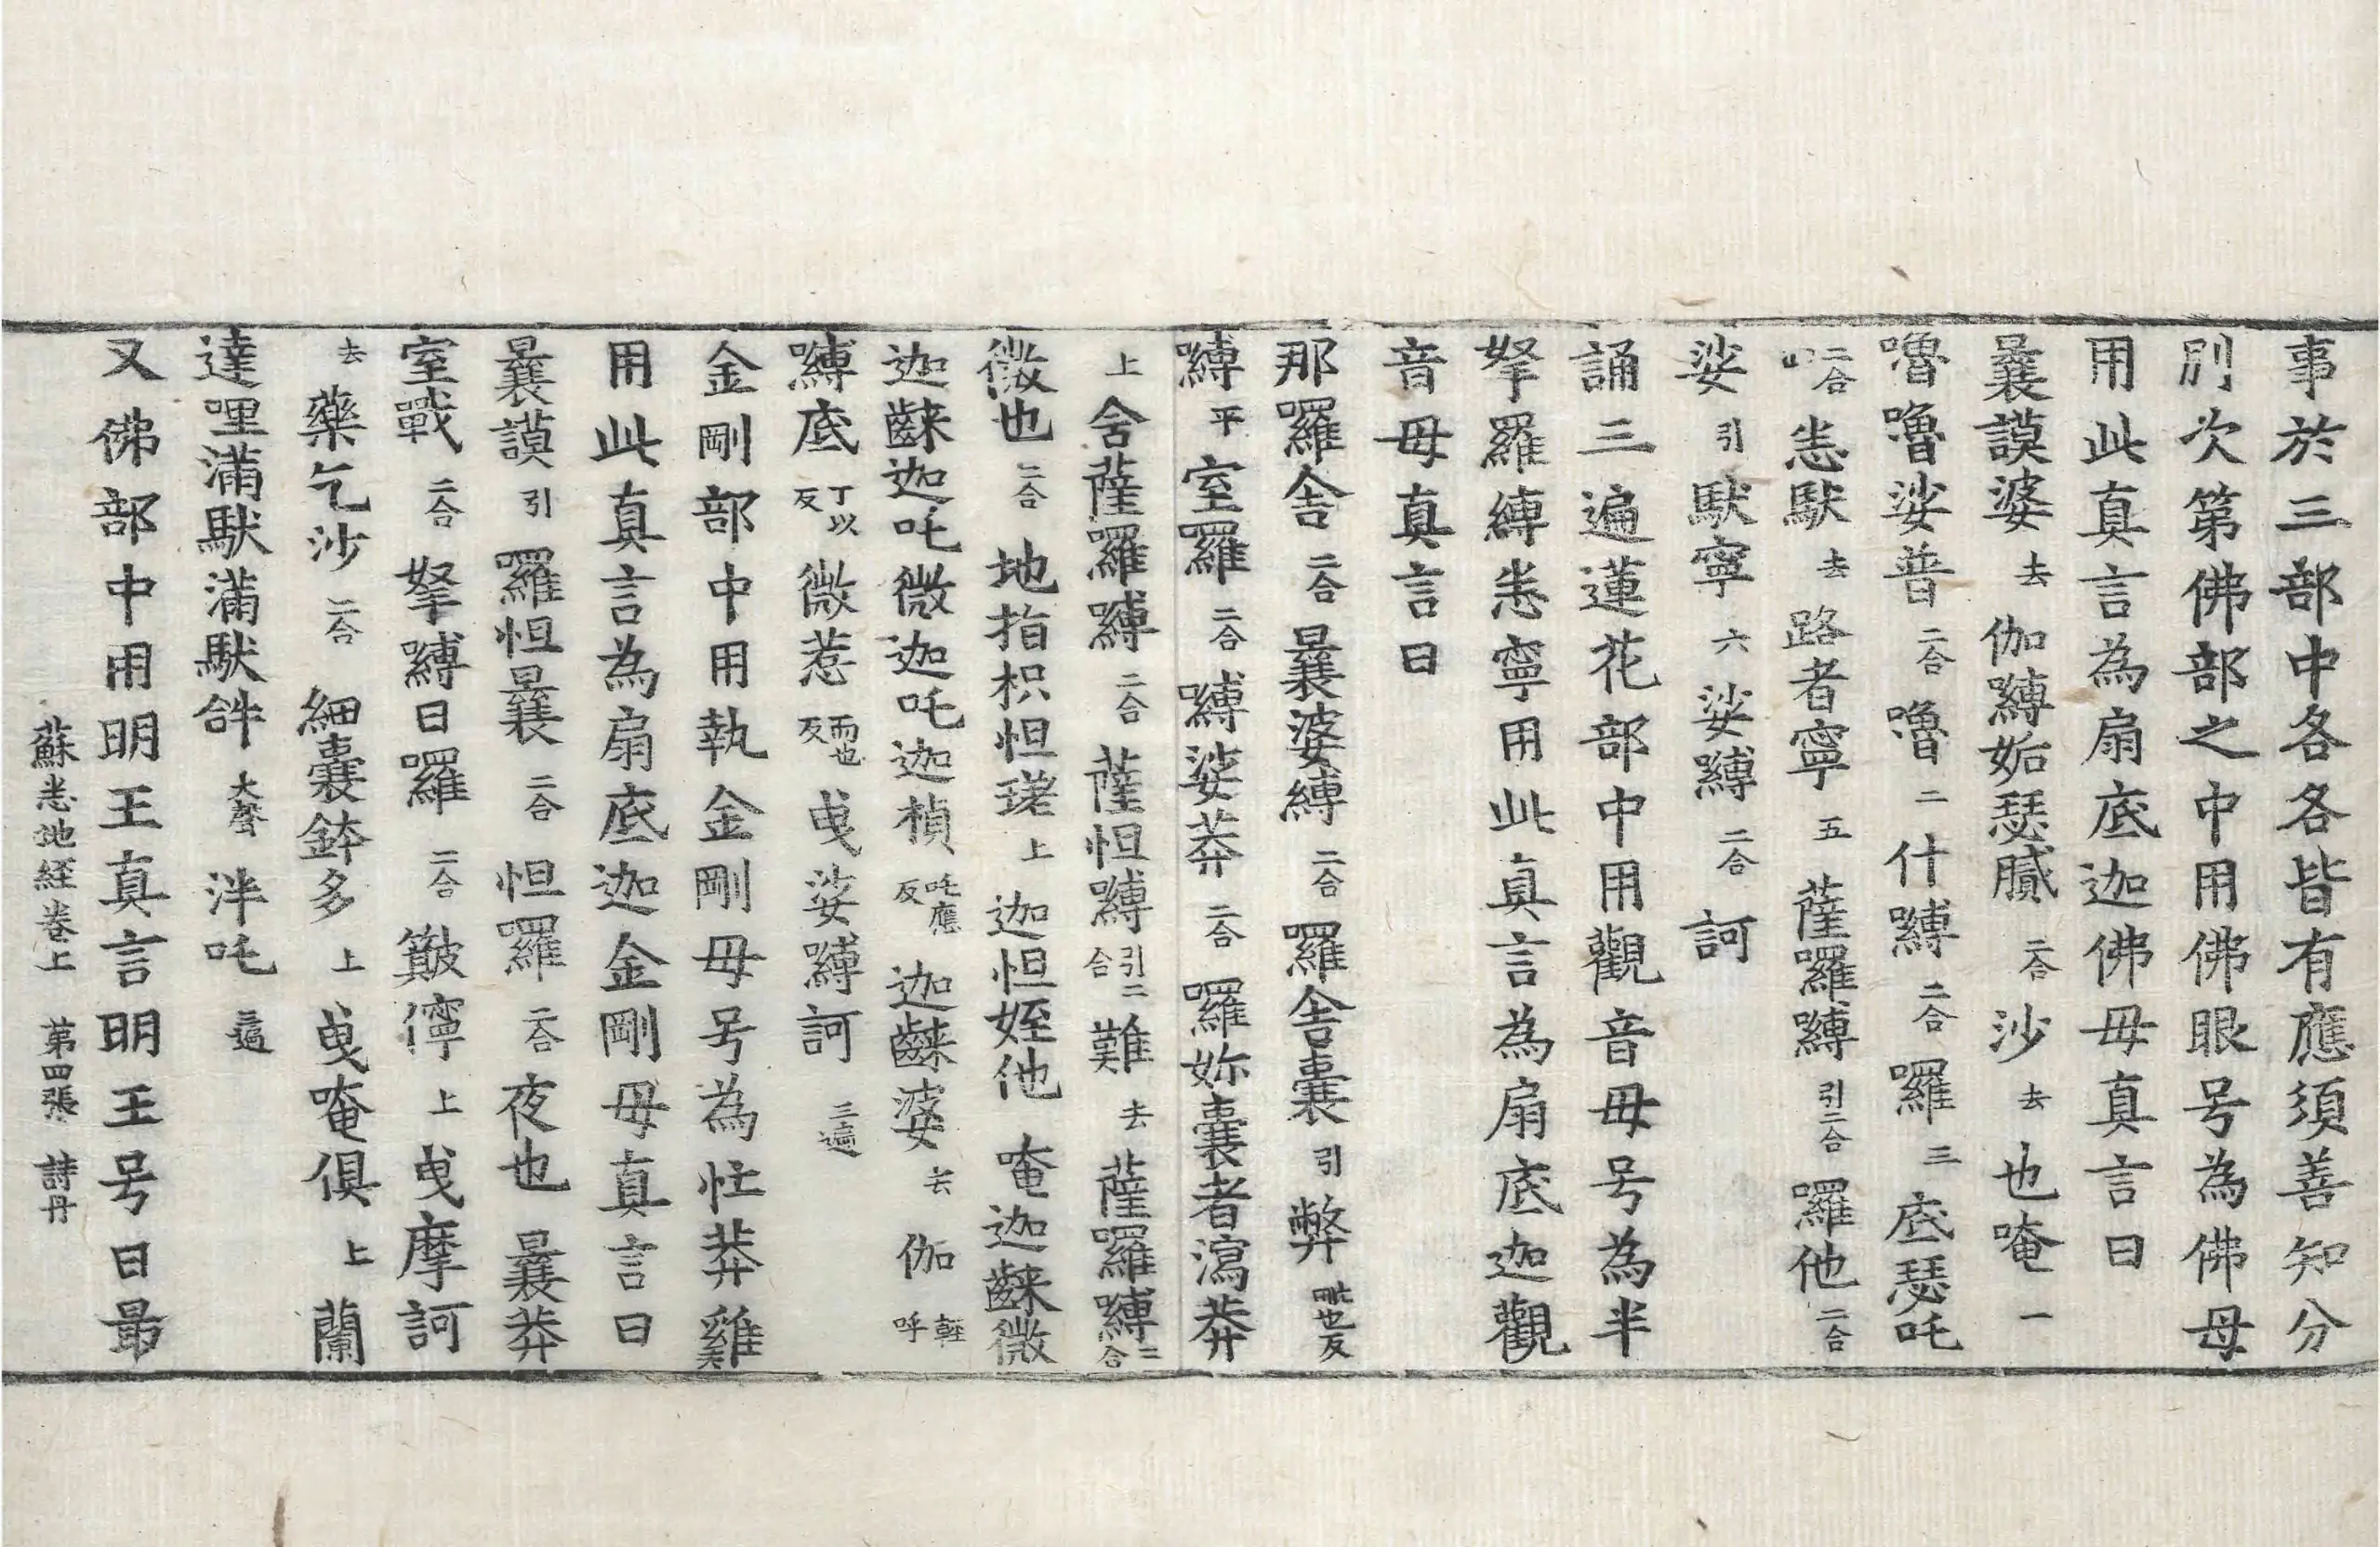 事於三部中各各皆有應須善知分
別次第佛部之中用佛眼号為佛母
用此真言為扇底迦佛母真言曰
曩謨婆去伽嚩姤瑟膩二合沙去也唵一
嚕嚕娑普二合嚕二什嚩二合囉三底瑟吒
二合四悉馱去路者寧五薩囉嚩引二合囉他二合
娑引馱寧六娑嚩二合訶
誦三遍蓮花部中用觀音母号為半
拏羅縛悉寧用此真言為扇底迦觀
音母真言曰
那囉舍二合曩婆縛二合囉舍曩引弊毗也反
嚩平室囉二合嚩娑莽二合囉妳曩者瀉莽
上舍薩囉嚩二合薩怛嚩引二合難去薩囉嚩二合
微也二合地指枳怛瑳上迦怛姪他唵迦䶛微
迦䶛迦吒微迦吒迦楨吒應反迦䶛婆去伽輕呼
嚩底丁以反微惹而也反曳娑嚩訶三遍
金剛部中用執金剛母号為忙莽雞
用此真言為扇底迦金剛母真言曰
曩謨引囉怛曩二合怛囉二合夜也曩莽
室戰二合拏嚩日囉二合簸儜上曳摩訶
去藥乞沙二合細曩鉢多上曳唵俱上蘭
達哩滿馱滿馱𤙖大聲泮吒三遍
又佛部中用明王真言明王号曰最
蘇悉地經卷上 第四張 詩丹